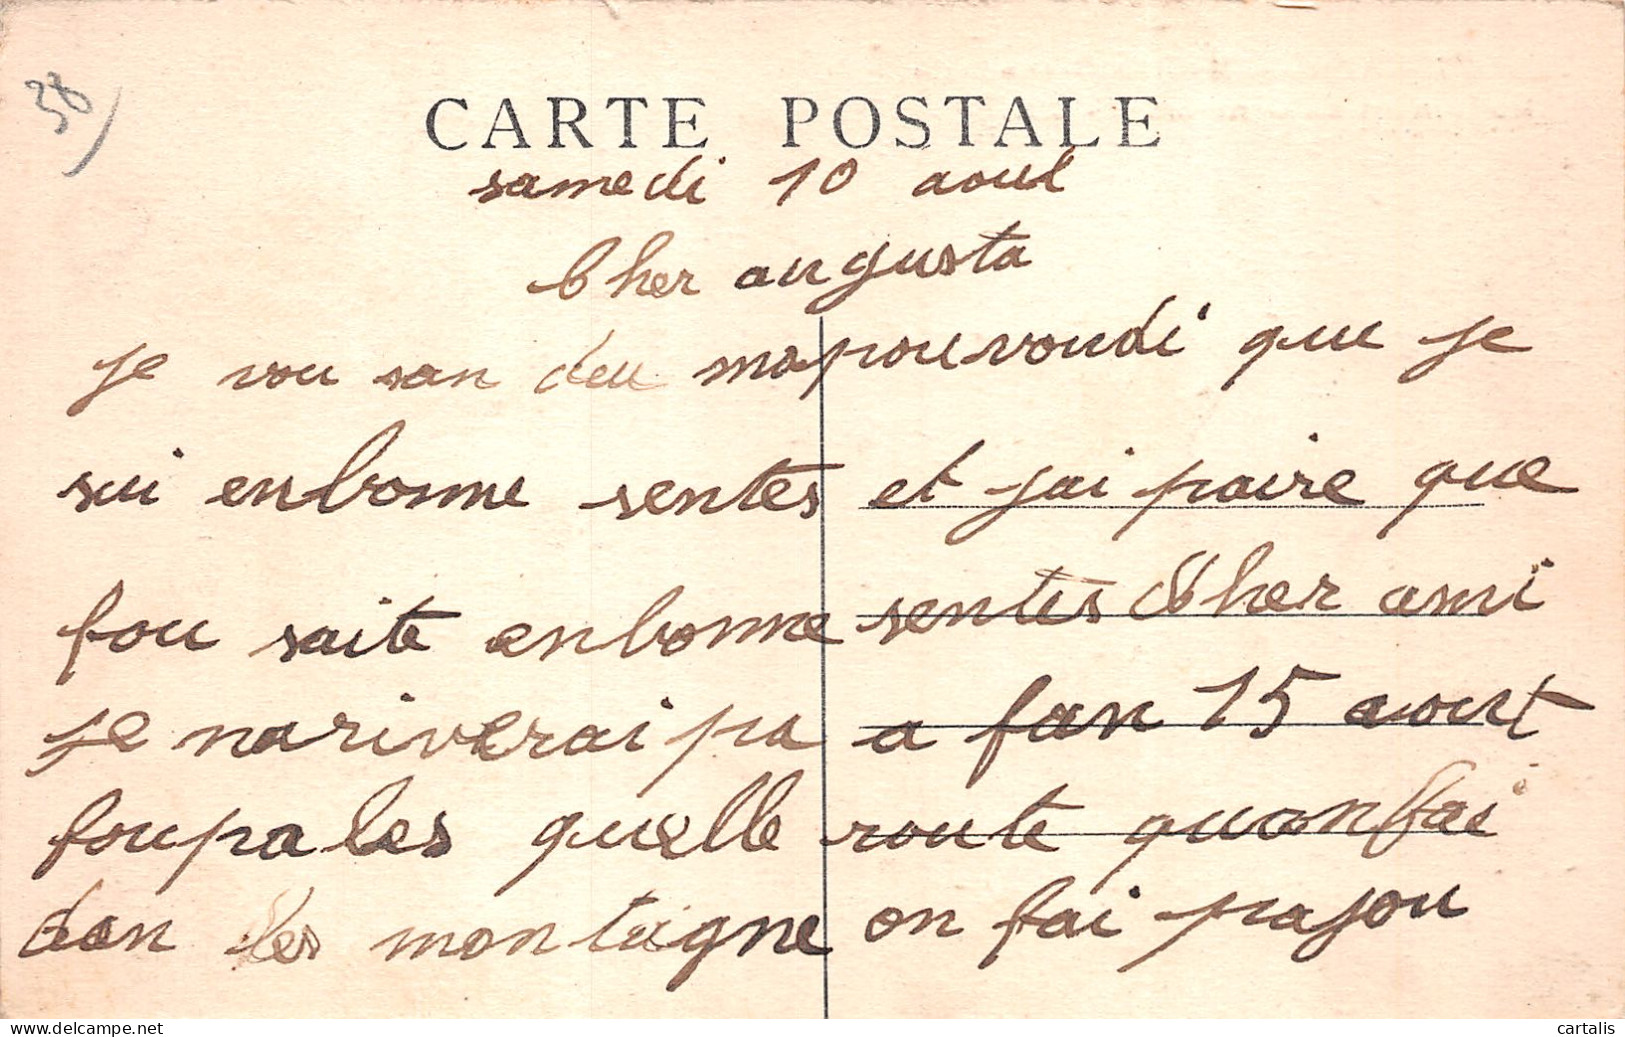 38
CARTE POSTALE
samedi 10 aout
Cher augusta
je vou san deu ma pouvoudi que je
sui enbonne sentes et jai paire que
fou saite enbonne sentes Cher ami
je nariverai pa a fan 15 aout
foupales quelle route quanfai
dan les montagne on fai pajou
www.delcampe.net
cartalis